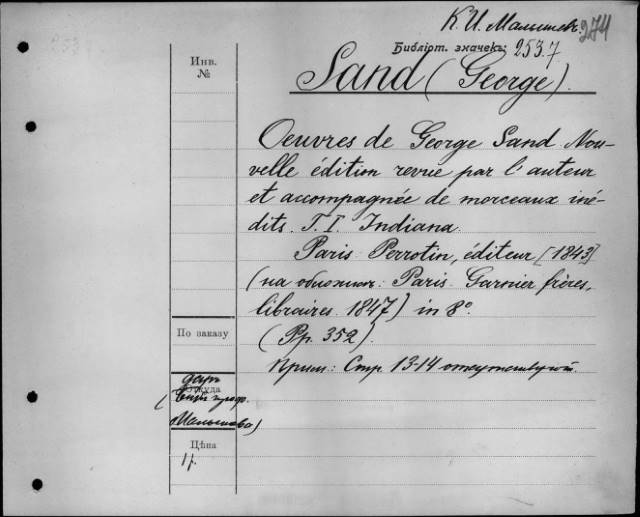 К. И. Малышев. 274
Библіот. значекъ: 253.7
Sand (George).
Инв.
№
Oeuvres de George Sand. Nou-
velle édition revue par l'auteur
et accompagnée de morceaux iné-
dits. T. I. Indiana.
Paris. Perrotin, éditeur [1843]
(на обложкѣ: Paris. Garnier frères,
libraires. 1847) in 8°.
(Pp. 352).
Прим.: Стр. 13-14 отсутствуют.
По заказу
даръ
Откуда
проф.
Малышева)
Цѣна
1 р.